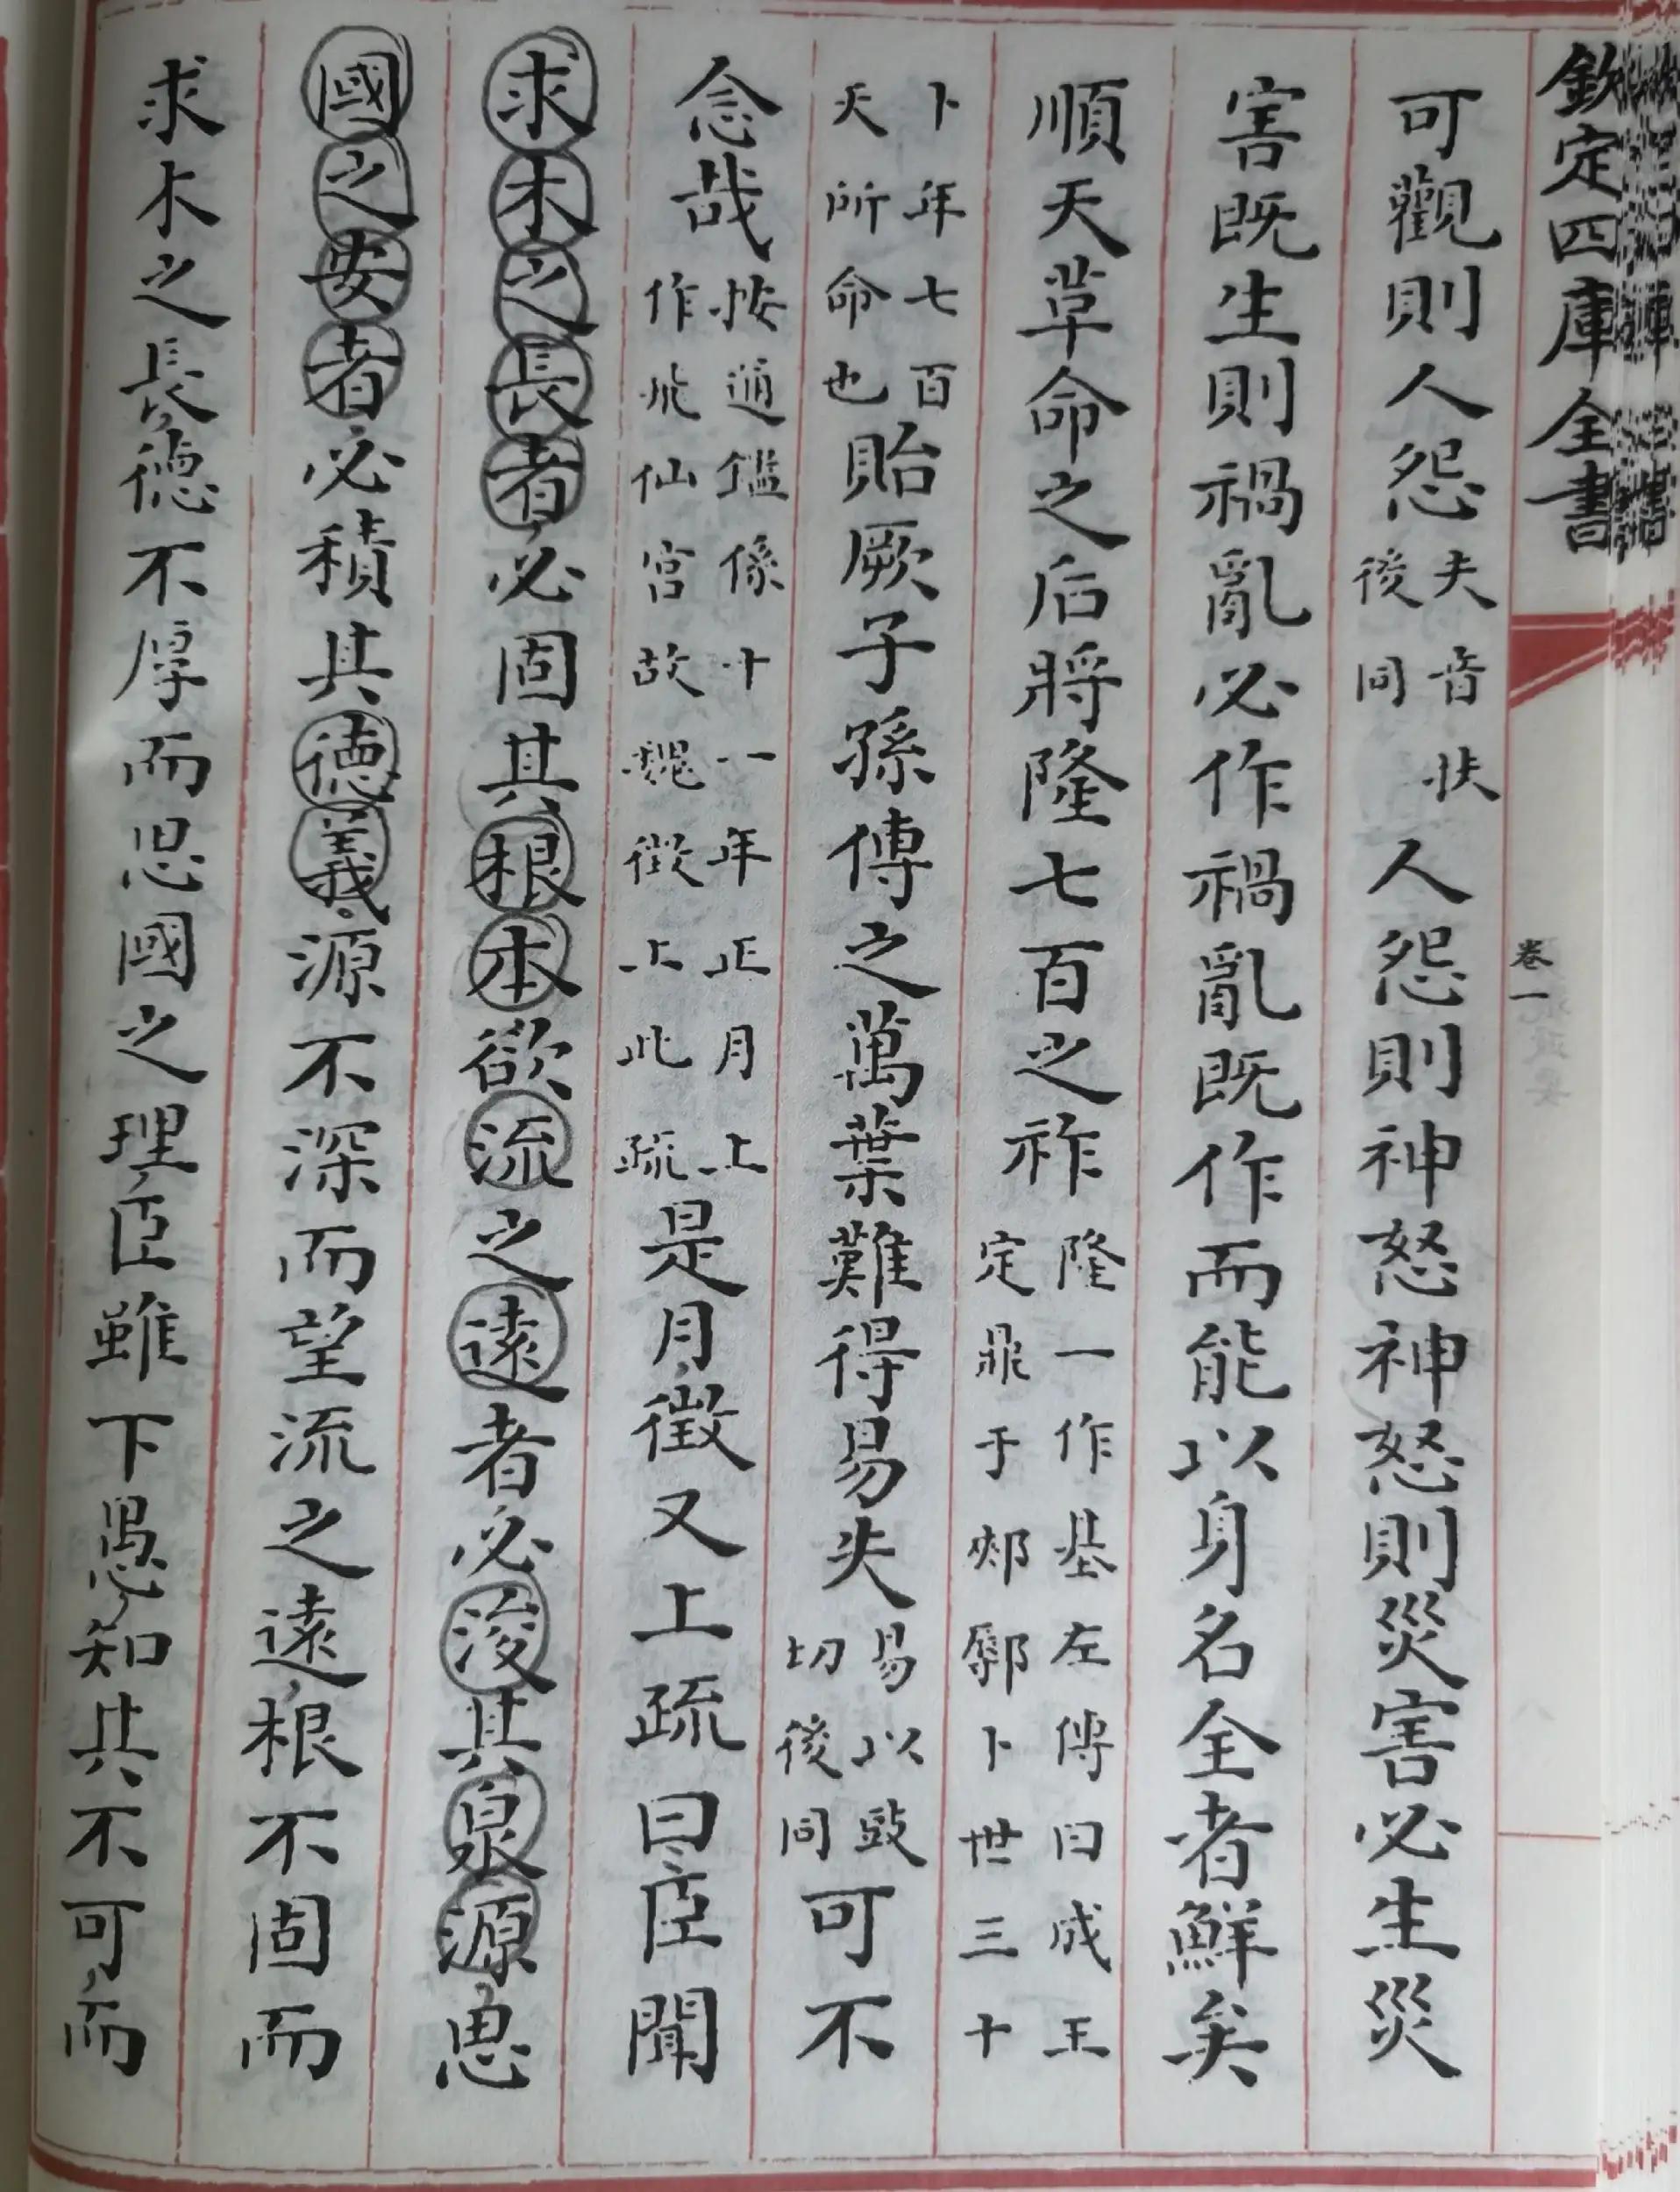 欽定四庫全書
卷一
可觀則人怨夫音狀後同人怨則神怒神怒則災害必生災
害既生則禍亂必作禍亂既作而能以身名全者鮮矣
順天草命之后將隆七百之祚隆一作基左傳曰成王定鼎于郟鄏卜世三十
卜年七百天所命也貽厥子孫傳之萬葉難得易失易以豉切後同可不
念哉按通鑑係十一年正月上作飛仙宮故魏徵上此疏是月徵又上疏曰臣聞
求木之長者必固其根本欲流之遠者必浚其泉源思
國之安者必積其德義源不深而望流之遠根不固而
求木之長德不厚而思國之理臣雖下愚知其不可而